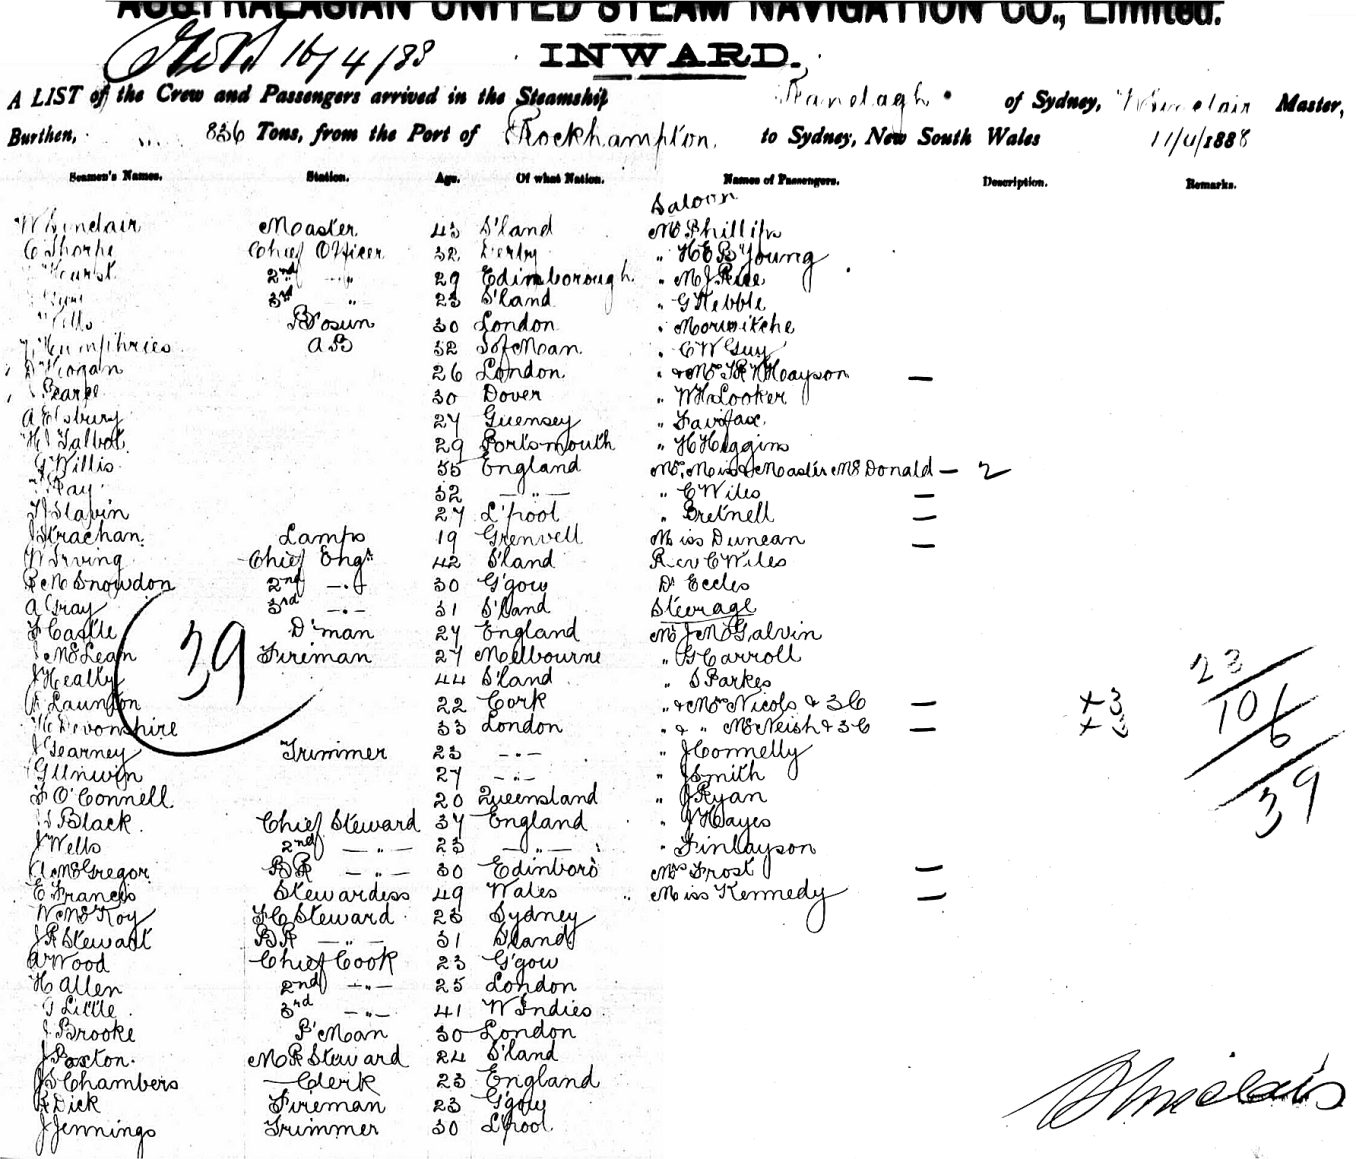 AUSTRALASIAN UNITED STEAM NAVIGATION CO., Limited.
16/4/88
INWARD.
A LIST of the Crew and Passengers arrived in the Steamship Ranelagh of Sydney, W Sinclair Master,
Burthen, 836 Tons, from the Port of Rockhampton, to Sydney, New South Wales 11/4/1888
Seamen's Names. Station. Age. Of what Nation. Names of Passengers. Description. Remarks.
Saloon
W Sinclair Master 43 S'land Mr Phillips
C Thorpe Chief Officer 32 Derby " H E B Young
Hurst 2nd -"- 29 Edinborough " M J Rice
3rd " 23 S'land " G Kebble
Wills B'osun 30 London "
Humphries A B 32 I of Man " C W Guy
D Hogan 26 London " & Mrs Hayson —
Pearce 30 Dover " W H Looker
A Elsbury 27 Guensey " Fairfax
H J Talbot 29 Portsmouth " H Higgins
G Willis 35 England Mr, Miss & Master McDonald — 2
Ray 32 —"— " C Wiles —
Slavin 27 L'pool " Bretnell —
J Strachan Lamps 19 Grenvell Miss Duncan —
W Irving Chief Engr 42 S'land Rev C Wiles
R M Snowdon 2nd -"- 30 G'gow Dr Eccles
A Gray 3rd -"- 31 S'land Steerage
F Castle D'man 27 England Mr J McGalvin
J McLean Fireman 27 Melbourne " G Carroll
J Healty 44 S'land " S Parkes
Launton 22 Cork " & Mrs Nicols & 3 C — + 3
H Devonshire 33 London " & " McNeish & 3 C — + 3
J Gearney Trimmer 23 -"- " J Connelly
G Unwin 27 -"- " J Smith
F O'Connell 20 Queensland " J Ryan
Black Chief Steward 37 England " J Hayes
J Wells 2nd —"— 23 —"— " Finlayson
A McGregor B R —"— 30 Edinboro Mrs Frost —
E Francis Stewardess 49 Wales Miss Kennedy —
W McKoy F C Steward 23 Sydney
J R Stewart B R —"— 31 S'land
A Wood Chief Cook 23 G'gow
H Allen 2nd -"- 25 London
G Little 3rd -"- 41 W Indies
J Brooke P'Man 30 London
J Paxton M R Steward 24 S'land
J S Chambers Clerk 23 England
R Dick Fireman 23 G'gow
J Jennings Trimmer 30 L'pool
39
23
10 6
6
39
Sinclair